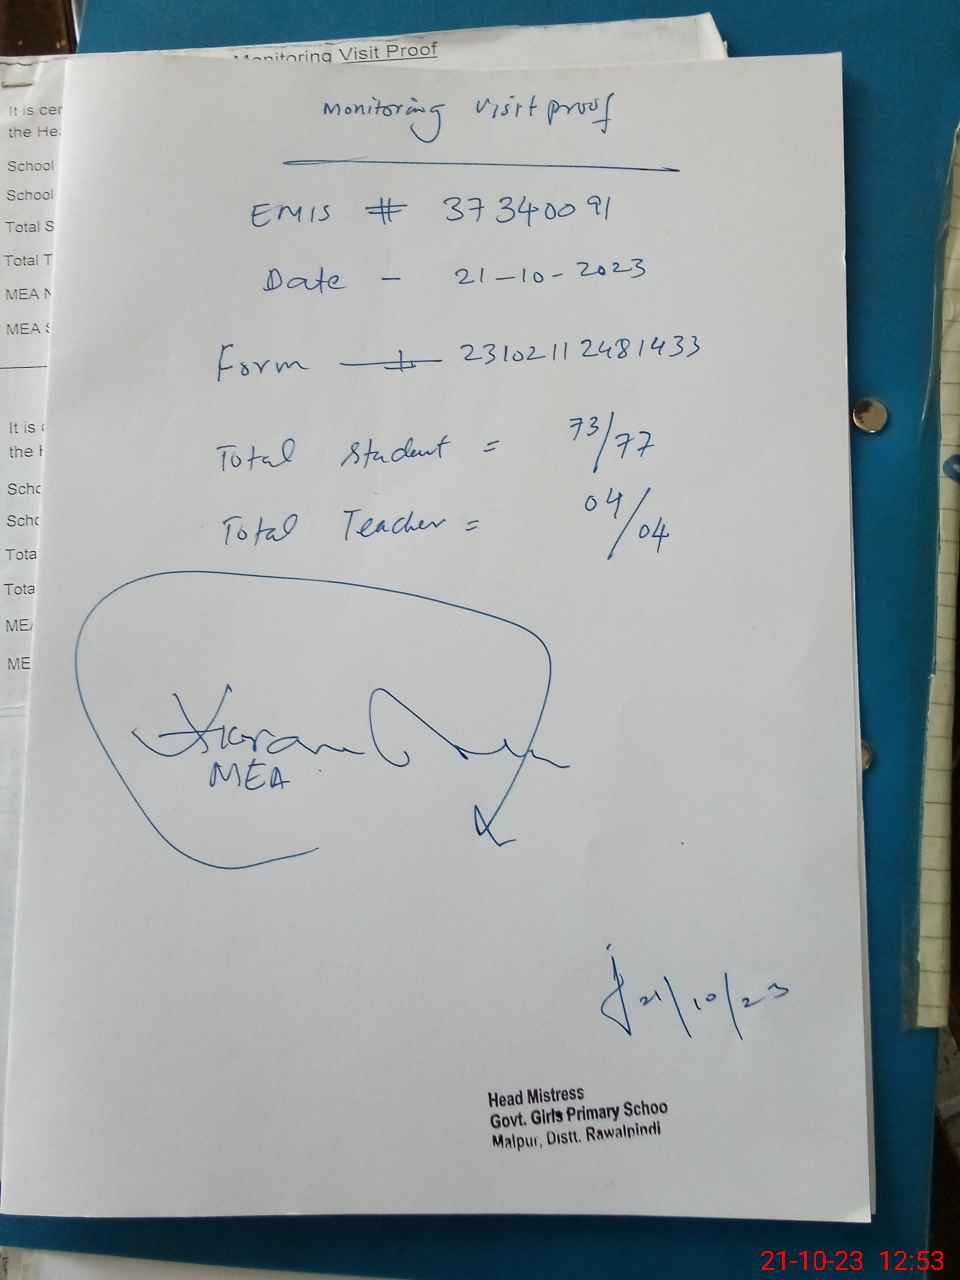 Monitoring Visit Proof
It is cer
the He
School
School
Total S
Total T
MEA N
MEA S
It is
the H
Scho
Scho
Tota
Tota
ME
ME
Monitoring Visit proof
EMIS # 37340091
Date - 21-10-2023
Form # 23102112481433
Total Student = 73/77
Total Teacher = 04/04
MEA
21/10/23
Head Mistress
Govt. Girls Primary Schoo
Malpur, Distt. Rawalpindi
21-10-23 12:53